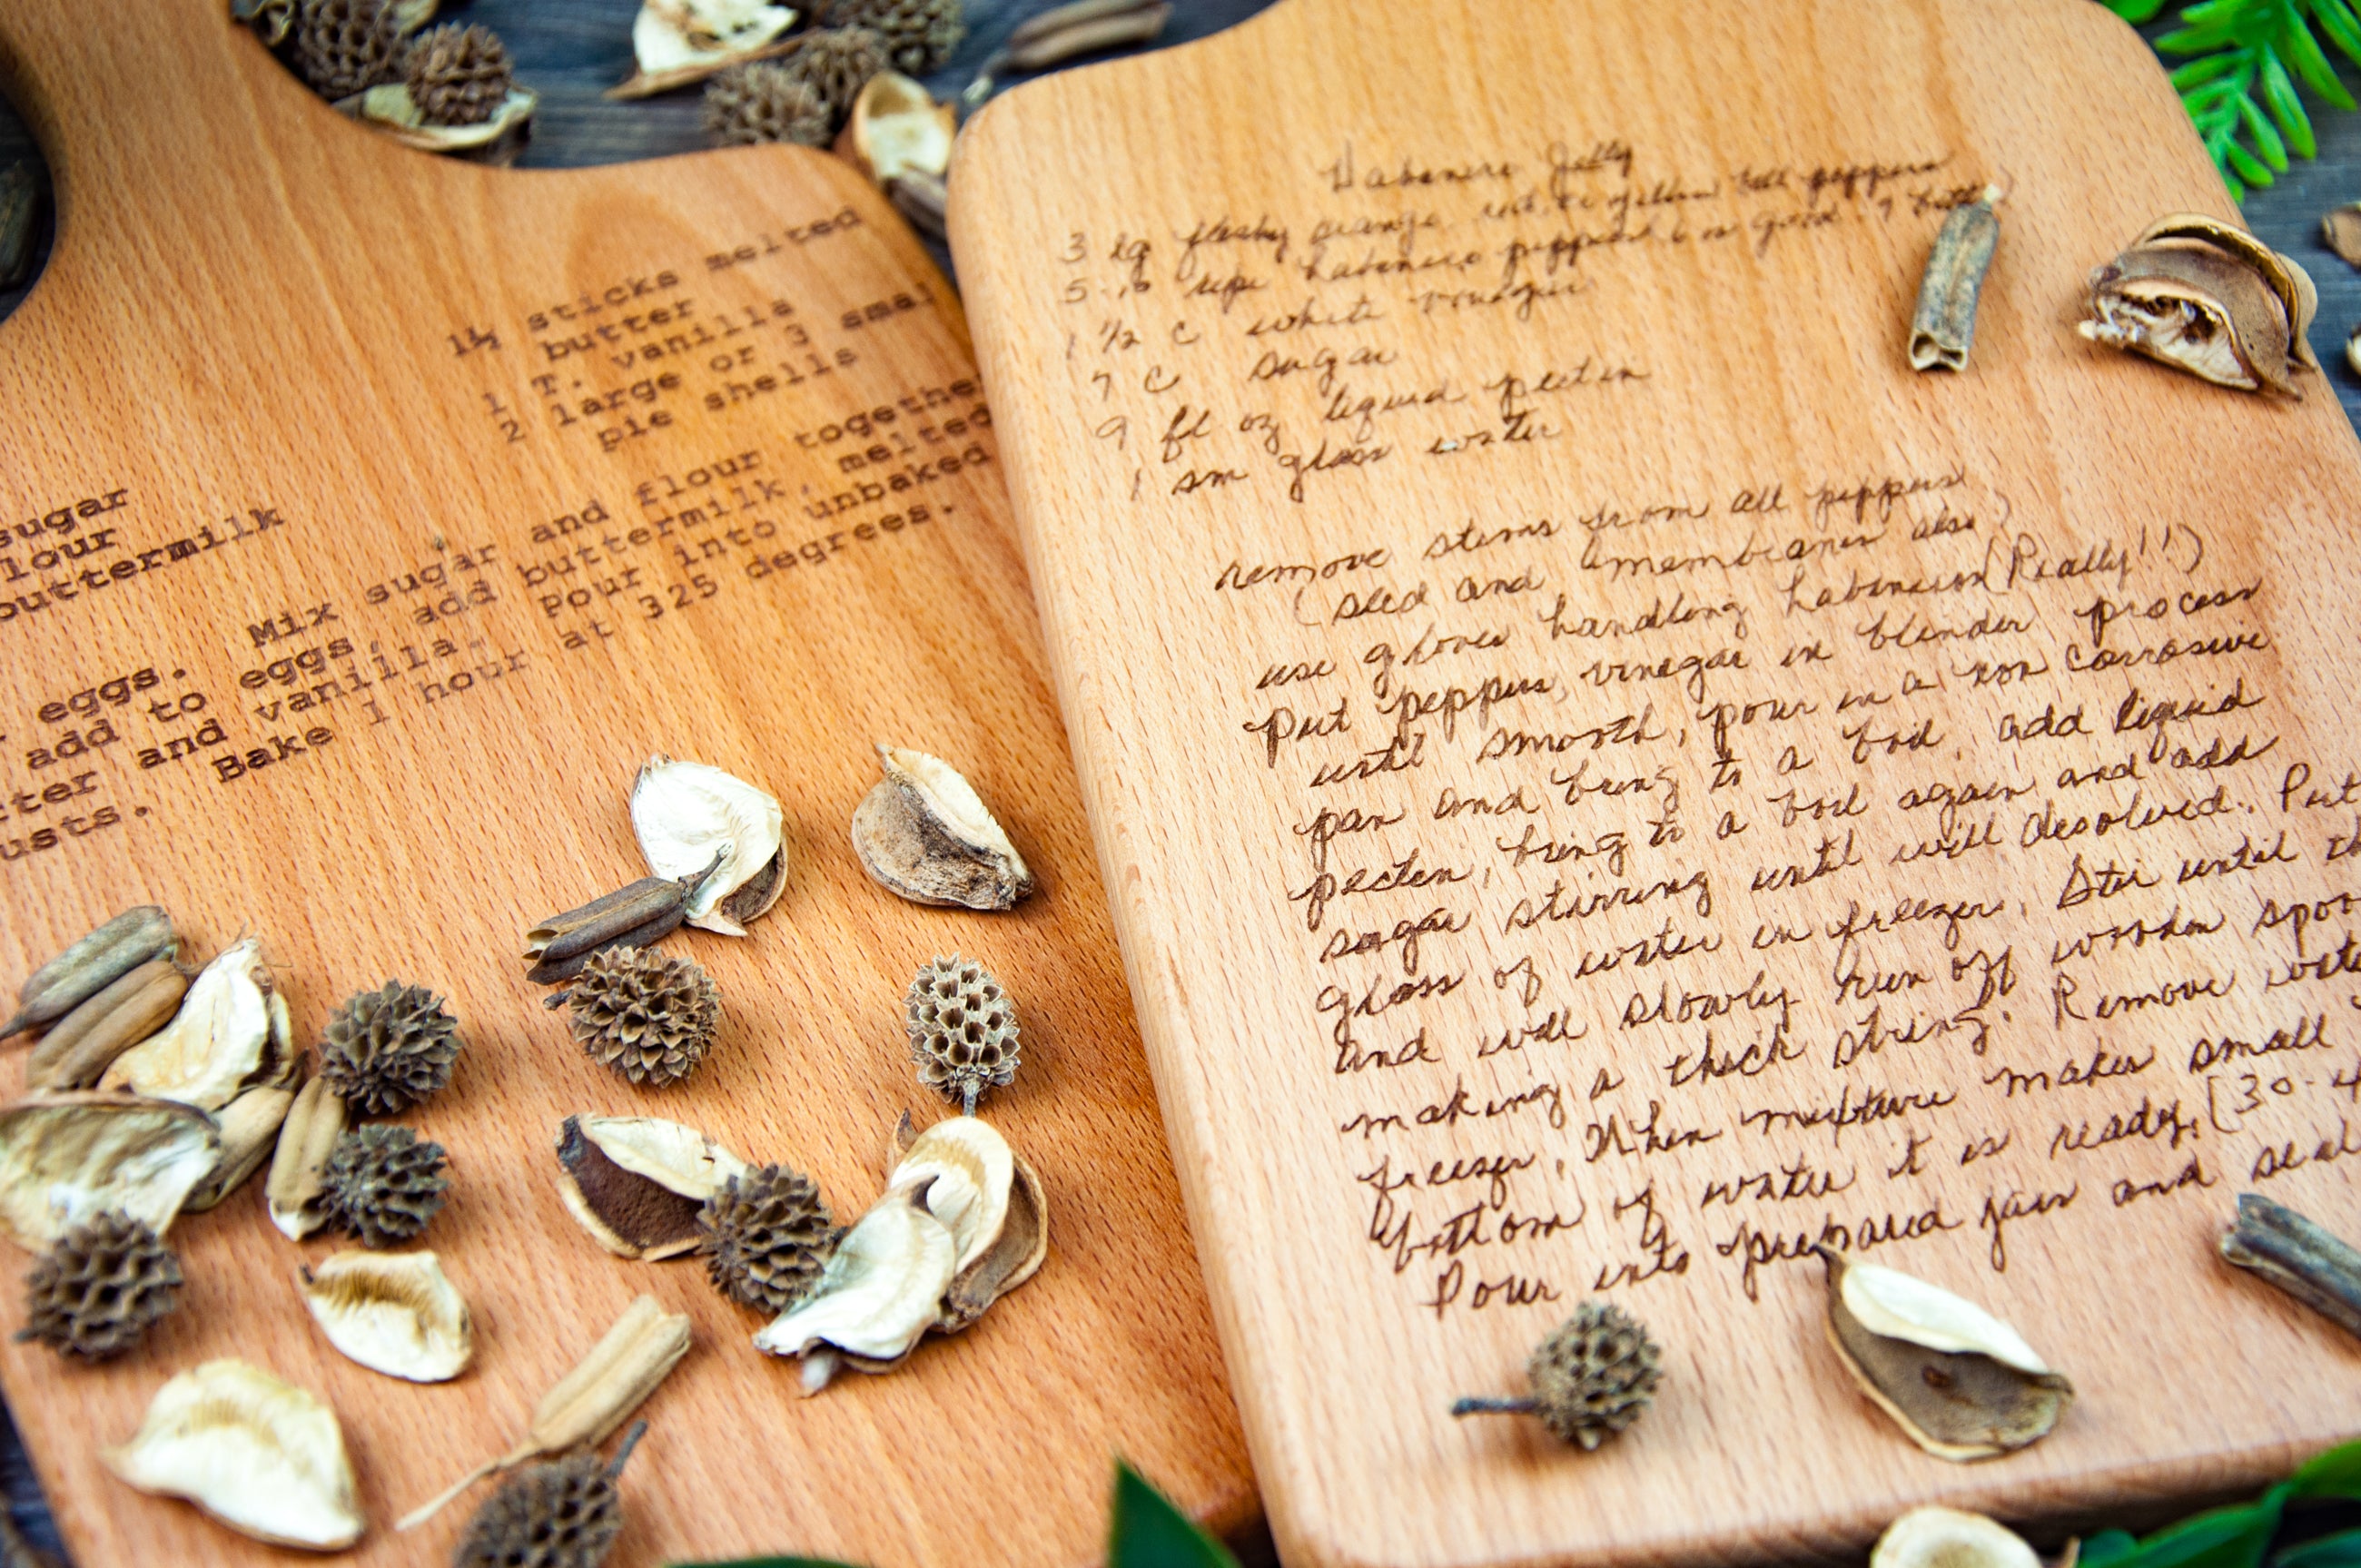 1½ sticks melted
butter
1 T. vanilla
2 large or 3 smal
pie shells
sugar
lour
buttermilk
eggs. Mix sugar and flour togethe
add to eggs, add buttermilk, melted
tter and vanilla. Pour into unbaked
usts. Bake 1 hour at 325 degrees.
Habenero Jelly
3 lg fleshy orange, red, or yellow bell peppers
5-10 ripe habenero peppers 6 is good. 9 hotter
1 1/2 c white vinegar
7 c sugar
9 fl oz liquid pectin
1 sm glass water
remove stems from all peppers
(seed and membranes also)
use gloves handling habeneros (Really!!)
Put peppers, vinegar in blender process
until smooth, pour in a non corrosive
pan and bring to a boil, add liquid
pectin, bring to a boil again and add
sugar stirring until will desolved. Put
glass of water in freezer, Stir until th
and will slowly run off wooden spoo
making a thick string. Remove wate
freezer, When mixture makes small
bottom of water it is ready. (30-4
Pour into prepared jars and seal